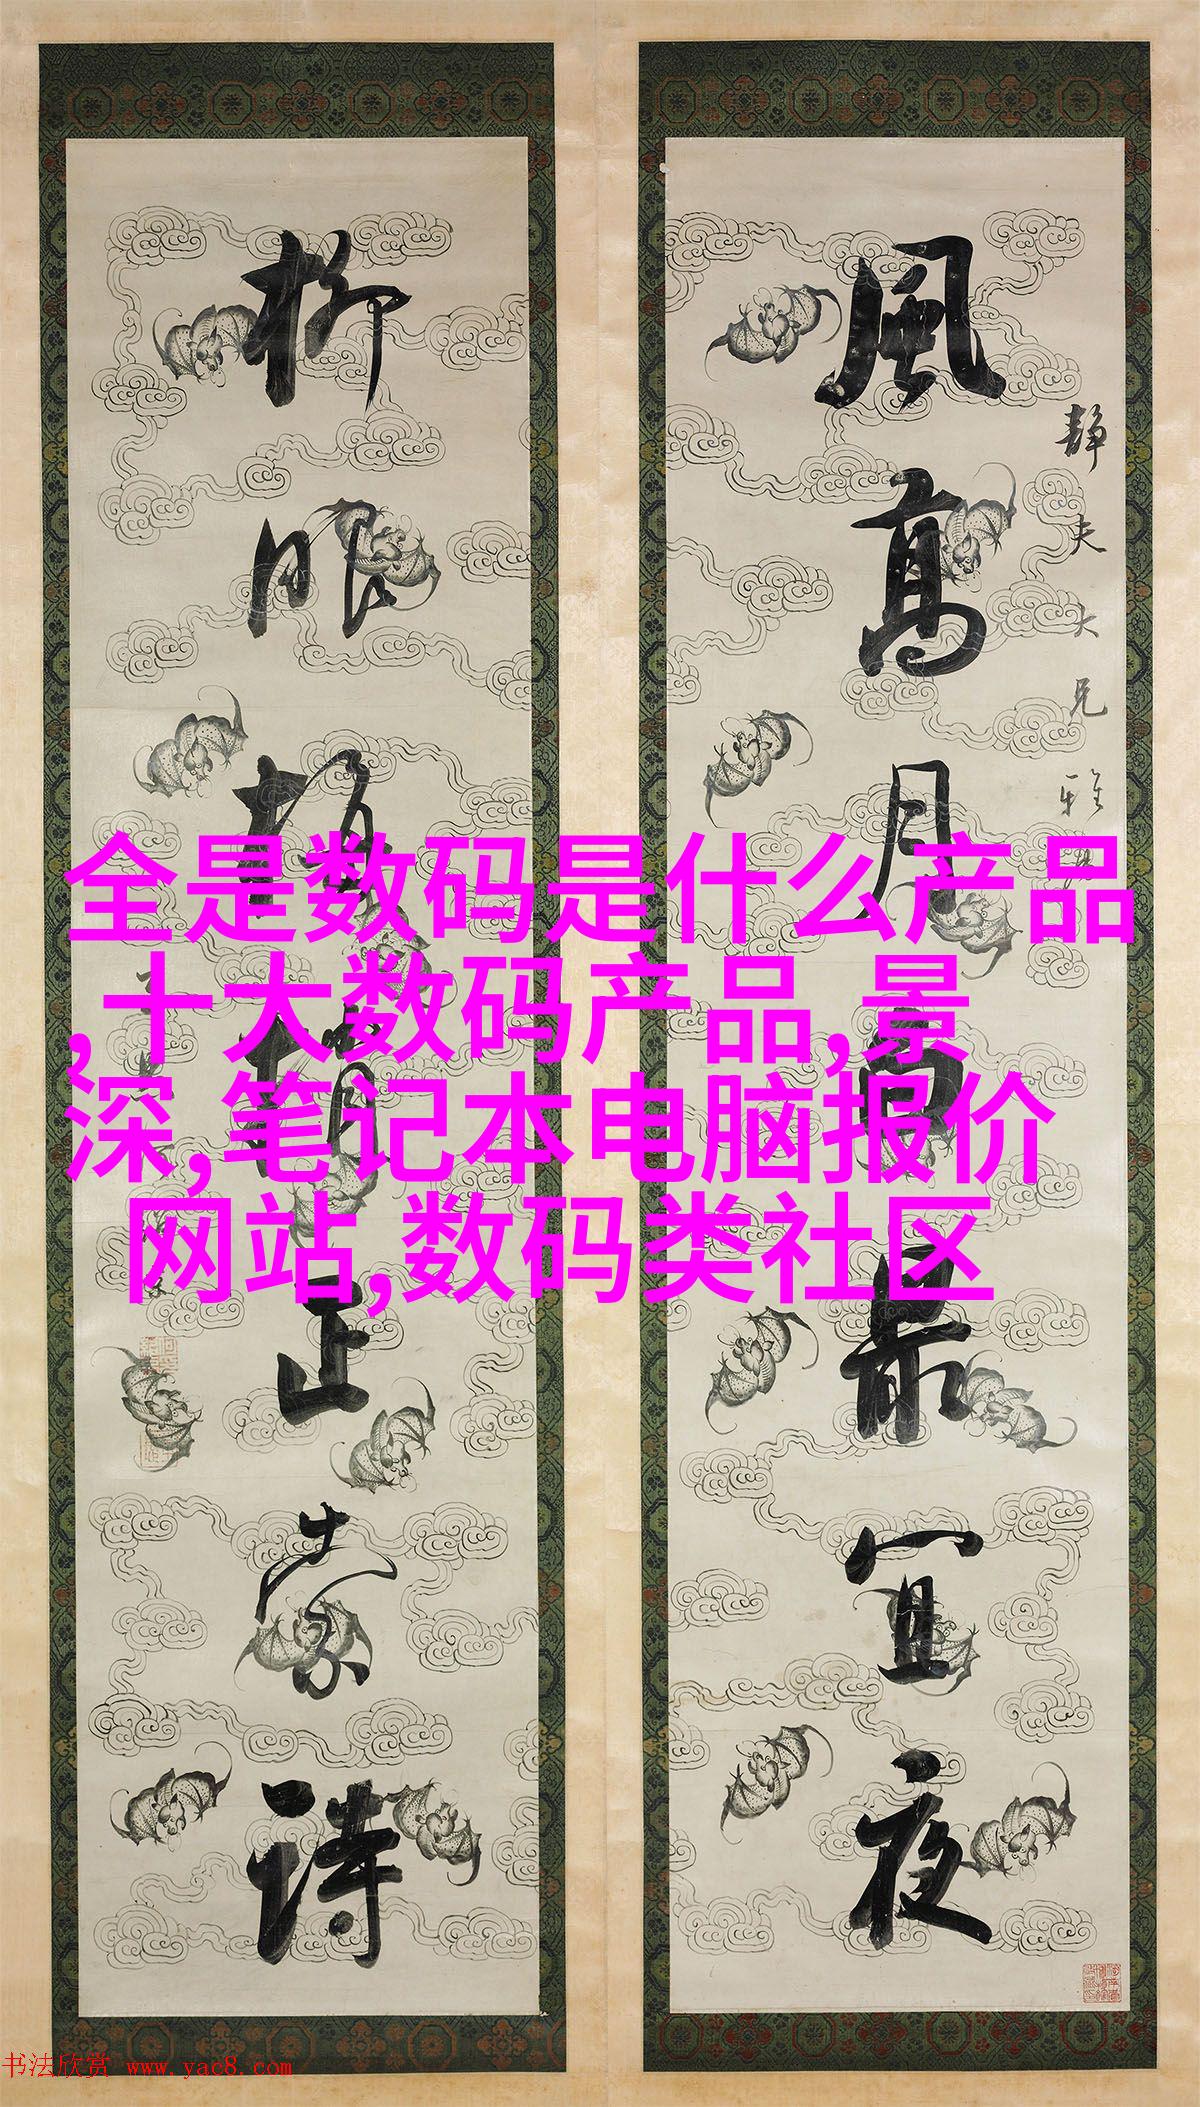 風高月最宜夜
靜夫大兄雅
柳眼梅情正索詩
全是数码是什么产品
,十大数码产品,景
深,笔记本电脑报价
网站,数码类社区
书法欣赏 www.yac8.com